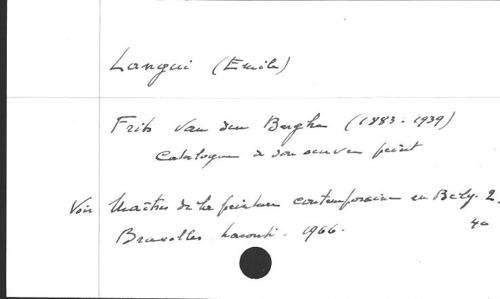 Langui (Emile)
Frits Van den Berghe (1883-1939)
Catalogue de son oeuvre peint
Voir Maîtres de la peinture contemporaine en Belg. 2.
Bruxelles, Laconti. 1966. 4°